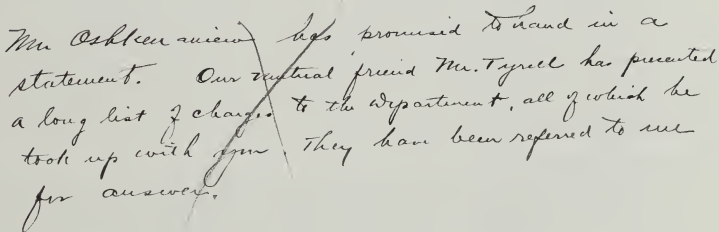 Mr. Oshkenaniew has promised to hand in a
statement. Our mutual friend Mr. Tyrell has presented
a long list of charges to the Department, all of which he
took up with you. They have been referred to me
for answer.